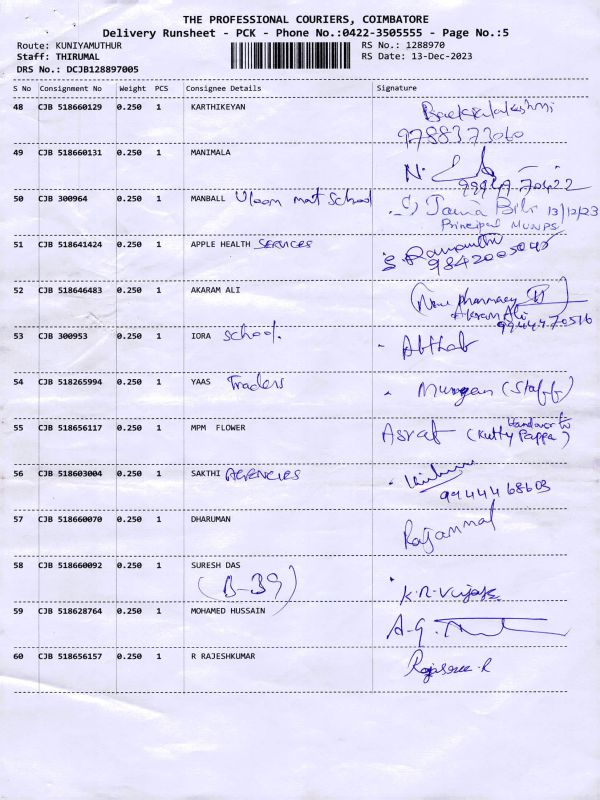 THE PROFESSIONAL COURIERS, COIMBATORE
Delivery Runsheet - PCK - Phone No.:0422-3505555 - Page No.:5
Route: KUNIYAMUTHUR RS No.: 1288970
Staff: THIRUMAL RS Date: 13-Dec-2023
DRS No.: DCJB128897005
S No Consignment No Weight PCS Consignee Details Signature
48 CJB 518660129 0.250 1 KARTHIKEYAN
9788373060
49 CJB 518660131 0.250 1 MANIMALA N.
99949.70422
50 CJB 300964 0.250 1 MANBALL mat School 13/12/23
Principal MUNPS
51 CJB 518641424 0.250 1 APPLE HEALTH SERVICES
9842005045
52 CJB 518646483 0.250 1 AKARAM ALI New pharmacy
Akram Ali
9944470516
53 CJB 300953 0.250 1 IORA School. - Abthab
54 CJB 518265994 0.250 1 YAAS Traders - Murugan (Staff)
55 CJB 518656117 0.250 1 MPM FLOWER Asraf (Kutty Pappa) Handover to
56 CJB 518603004 0.250 1 SAKTHI AGENCIES
9444468603
57 CJB 518660070 0.250 1 DHARUMAN Rajammal
58 CJB 518660092 0.250 1 SURESH DAS
(B-39) K.R. Vijay
59 CJB 518628764 0.250 1 MOHAMED HUSSAIN A.G.
60 CJB 518656157 0.250 1 R RAJESHKUMAR Rajasree. R